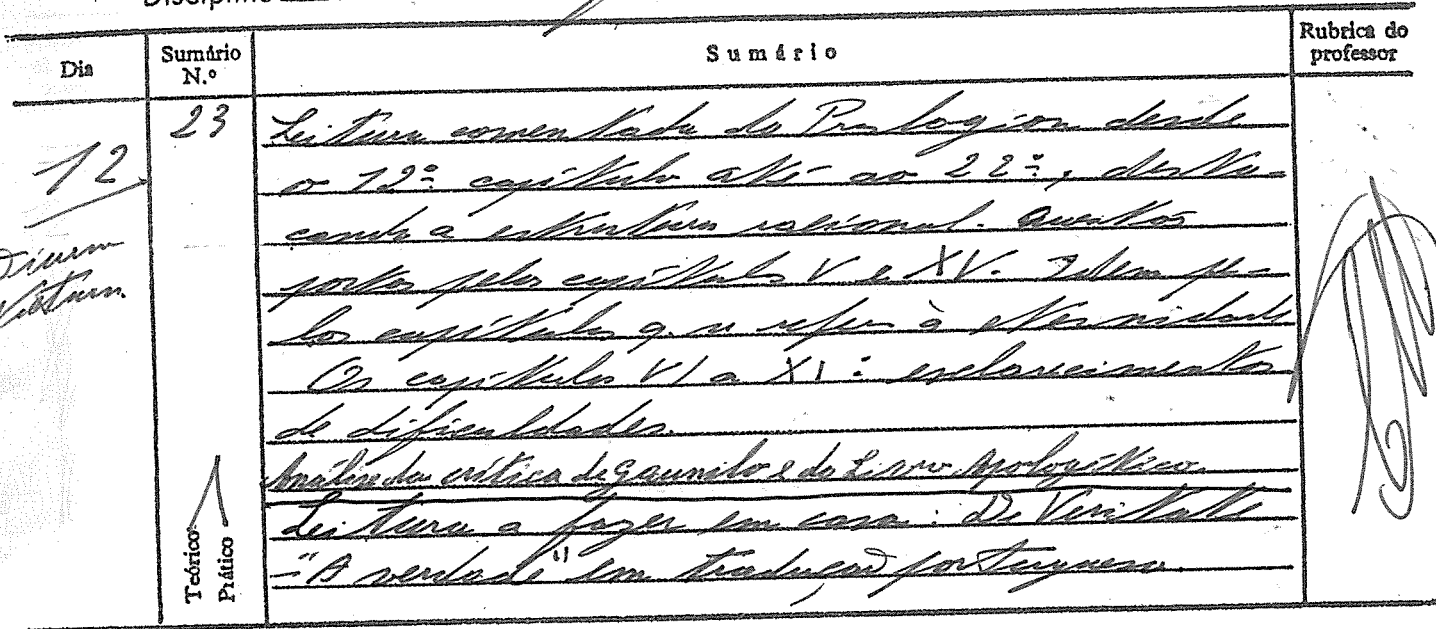 Disciplin
Dia
Sumário N.º
Sumário
Rubrica do professor
12
23
Leitura comentada do Proslogion desde
o 12º capítulo até ao 22º, desta-
cando a estrutura racional. Questões
postas pelos capítulos V e XV. Idem pe-
los capítulos q. se refere à eternidade
Os capítulos VI a XI: esclarecimentos
de dificuldades.
Análise da crítica de Gaunilo e do Livro Apologético.
Leitura a fazer em casa: De Veritate
- "A verdade" em tradução portuguesa.
Teórico
Prático